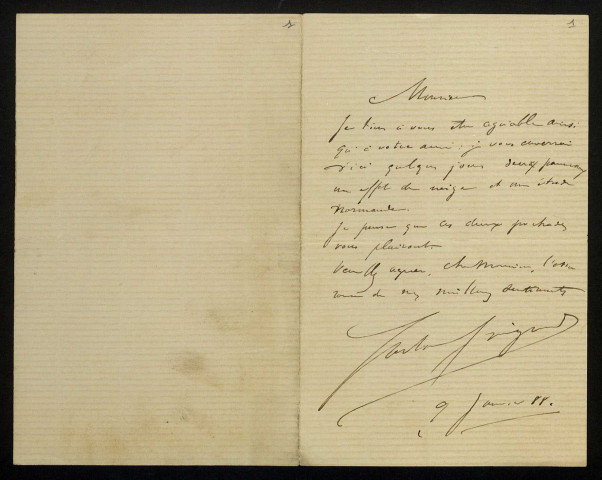 1
Monsieur
Je tiens à vous être agréable ainsi
qu'à votre ami : je vous enverrai
d'ici quelques jours deux panneaux
un effet de neige et une étude
Normande.
Je pense que ces deux pochades
vous plairont.
Veuillez agréer, cher Monsieur, l'assu
rance de mes meilleurs sentiments
9 Janvier 88.